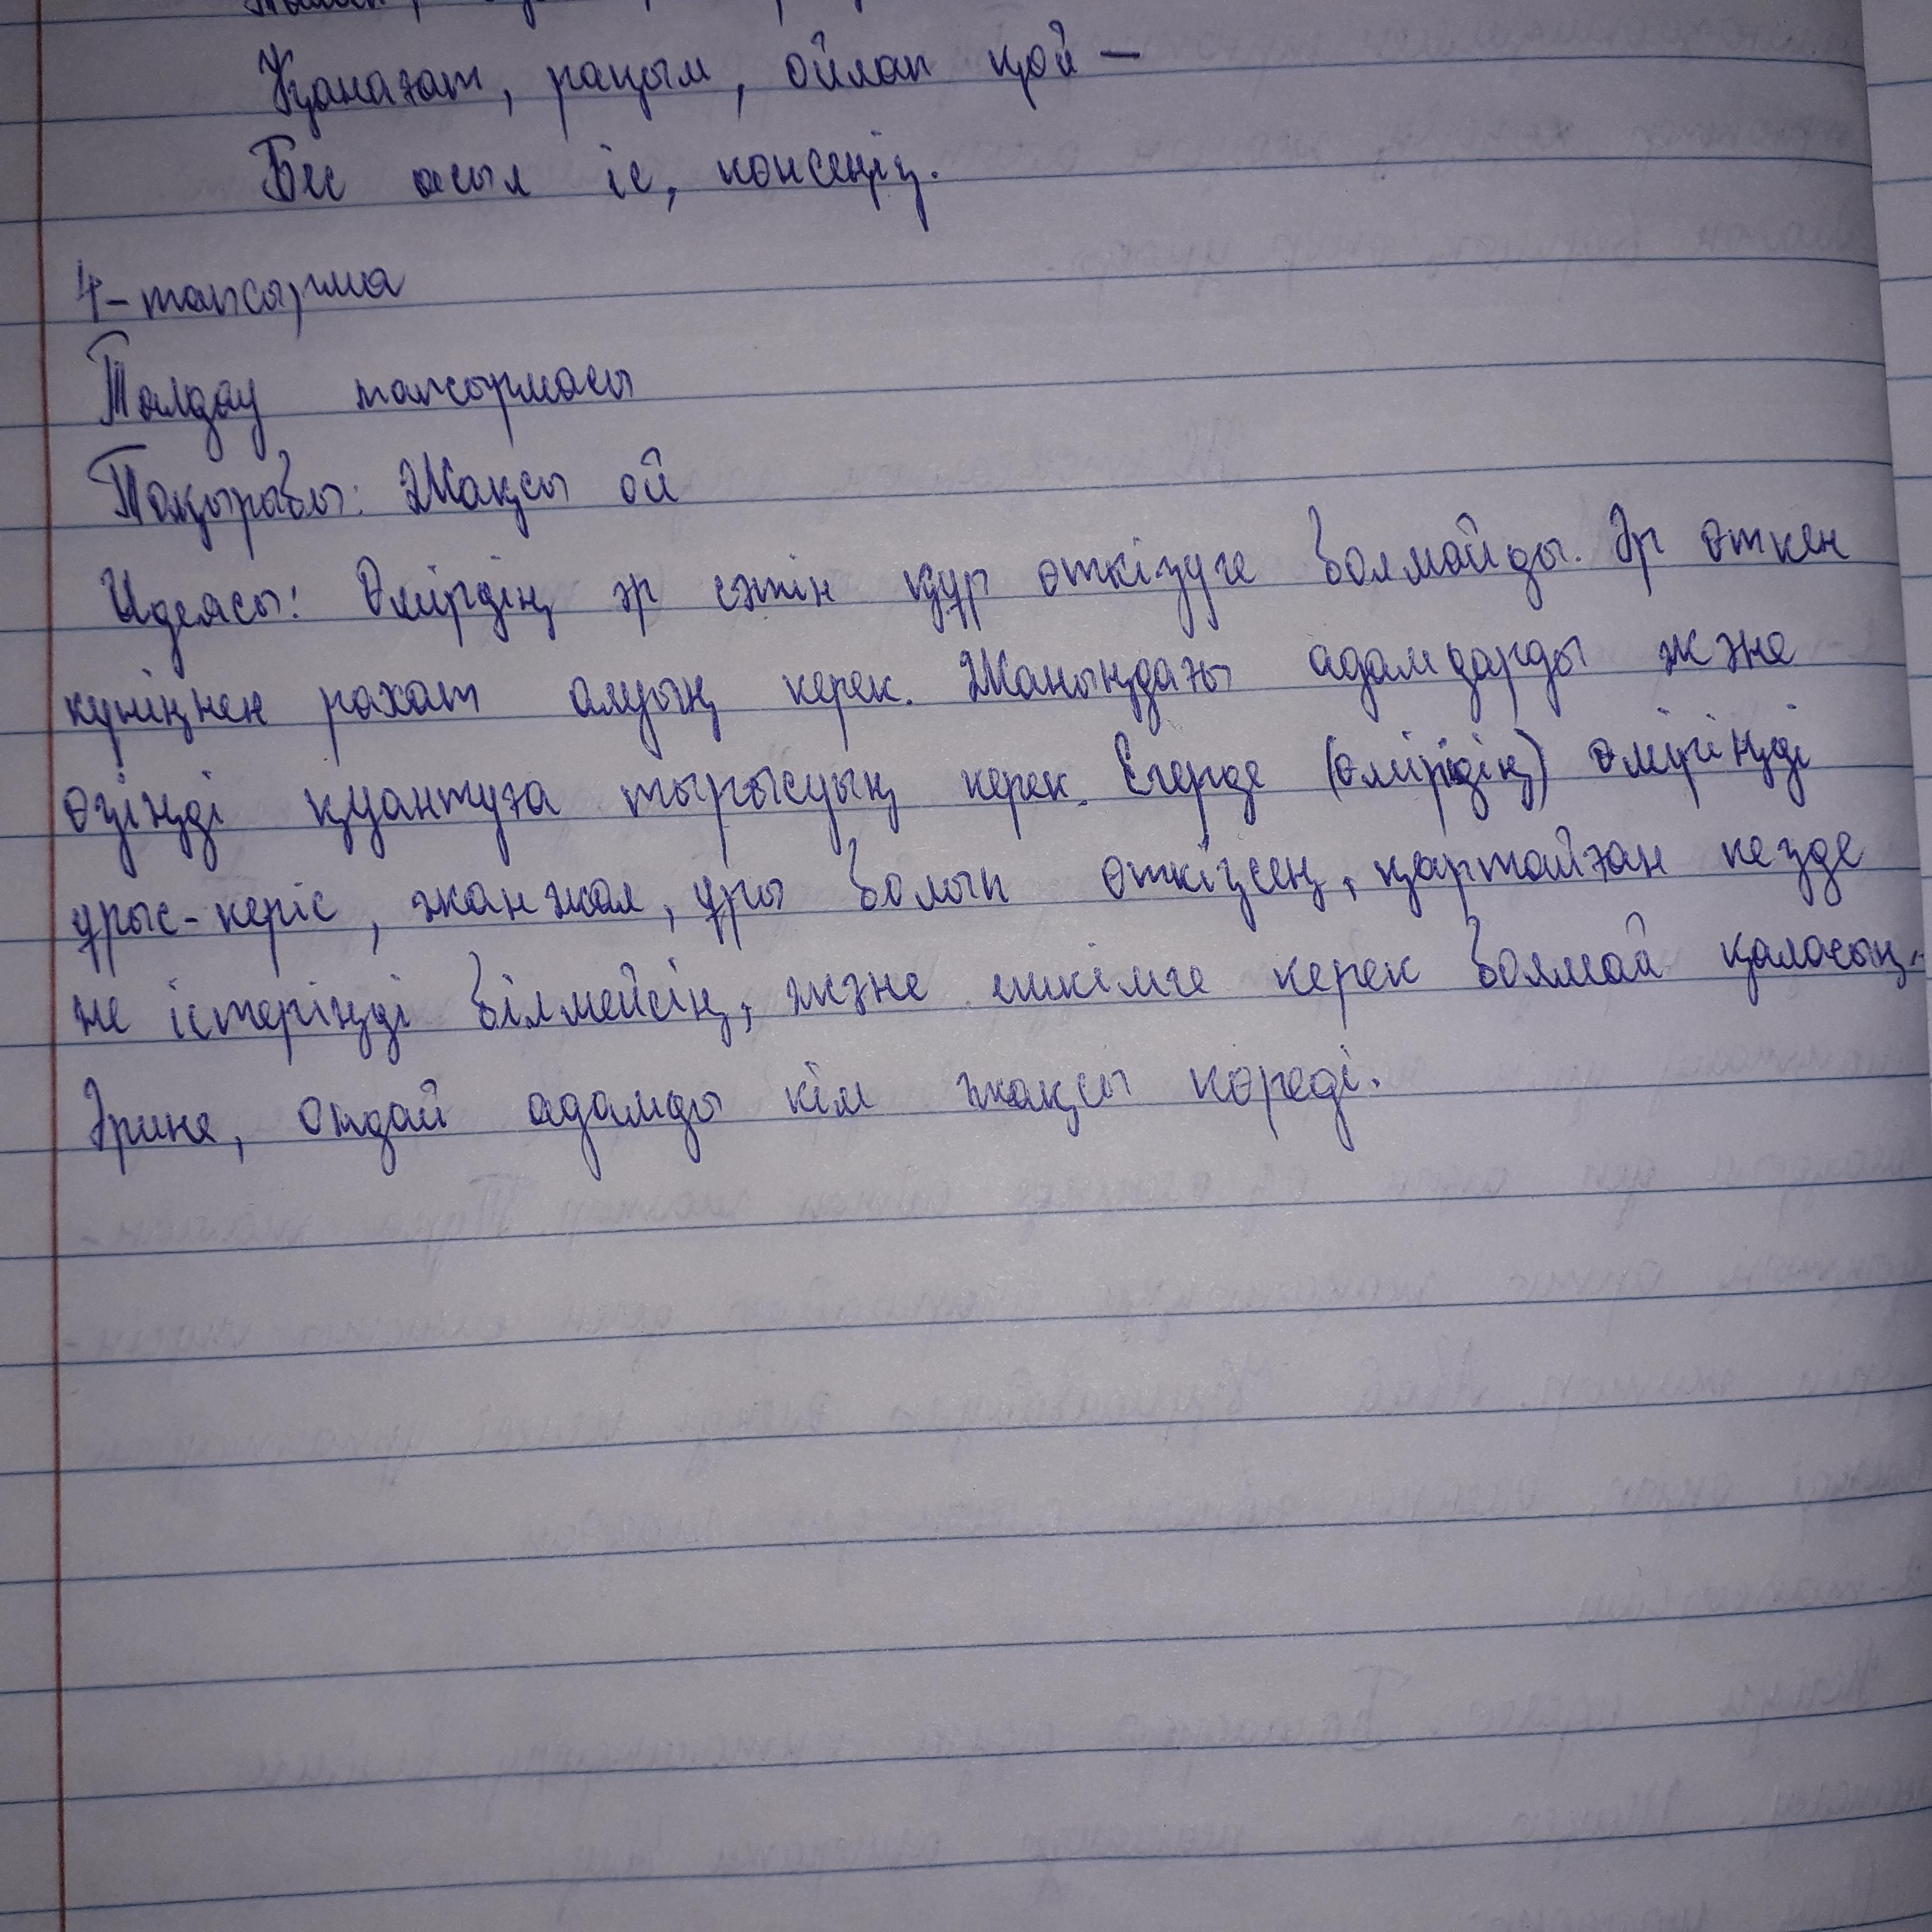 Қанағат, рақым, ойлап қой –
Бес асыл іс, көнсеңіз.
4-тапсырма
Талдау тапсырмасы
Тақырыбы: Жақсы ой
Идеясы: Өмірдің әр сәтін құр өткізуге болмайды. Әр өткен
күніңнен рахат алуың керек. Жаныңдағы адамдарды және
өзіңді қуантуға тырысуың керек. Егерде (өмірідің) өміріңді
ұрыс-керіс, жанжал, ұры болып өткізсең, қартайған кезде
не істеріңді білмейсің, және ешкімге керек болмай қаласың.
Әрине, ондай адамды кім жақсы көреді.